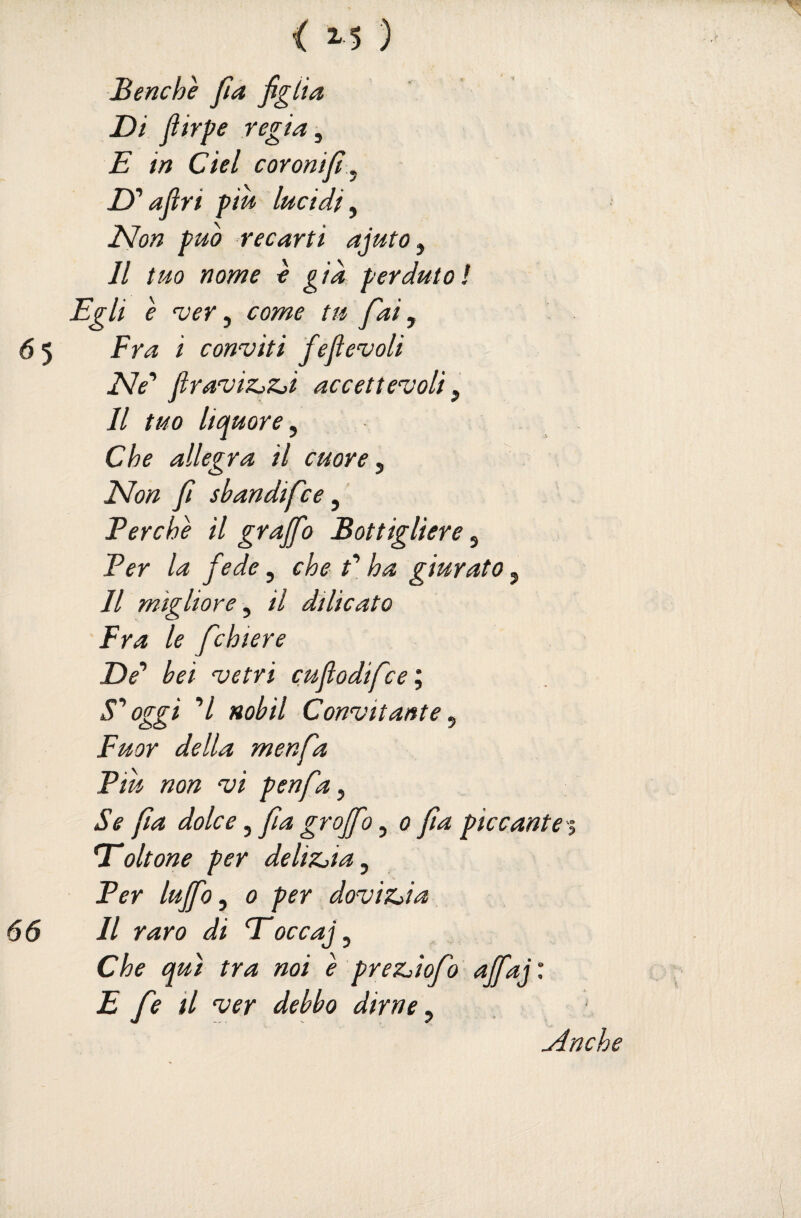 ( 25 )
Benchè ſia figlia
Di ſtirpe regia,
E in Ciel coroniſi,
D' aſtri più lucidi,
Non può recarti ajuto,
Il tuo nome è già perduto!
Egli è ver, come tu ſai,
65 Fra i conviti feſtevoli
Ne' ſtravizzi accettevoli,
Il tuo liquore,
Che allegra il cuore,
Non ſi sbandiſce,
Perchè il graſſo Bottigliere,
Per la fede, che t' ha giurato,
Il migliore, il dilicato
Fra le ſchiere
De' bei vetri cuſtodiſce;
S' oggi 'l nobil Convitante,
Fuor della menſa
Più non vi penſa,
Se ſia dolce, ſia groſſo, o ſia piccante;
Toltone per delizia,
Per luſſo, o per dovizia
66 Il raro di Toccaj,
Che quì tra noi è prezioſo aſſaj:
E ſe il ver debbo dirne,
Anche